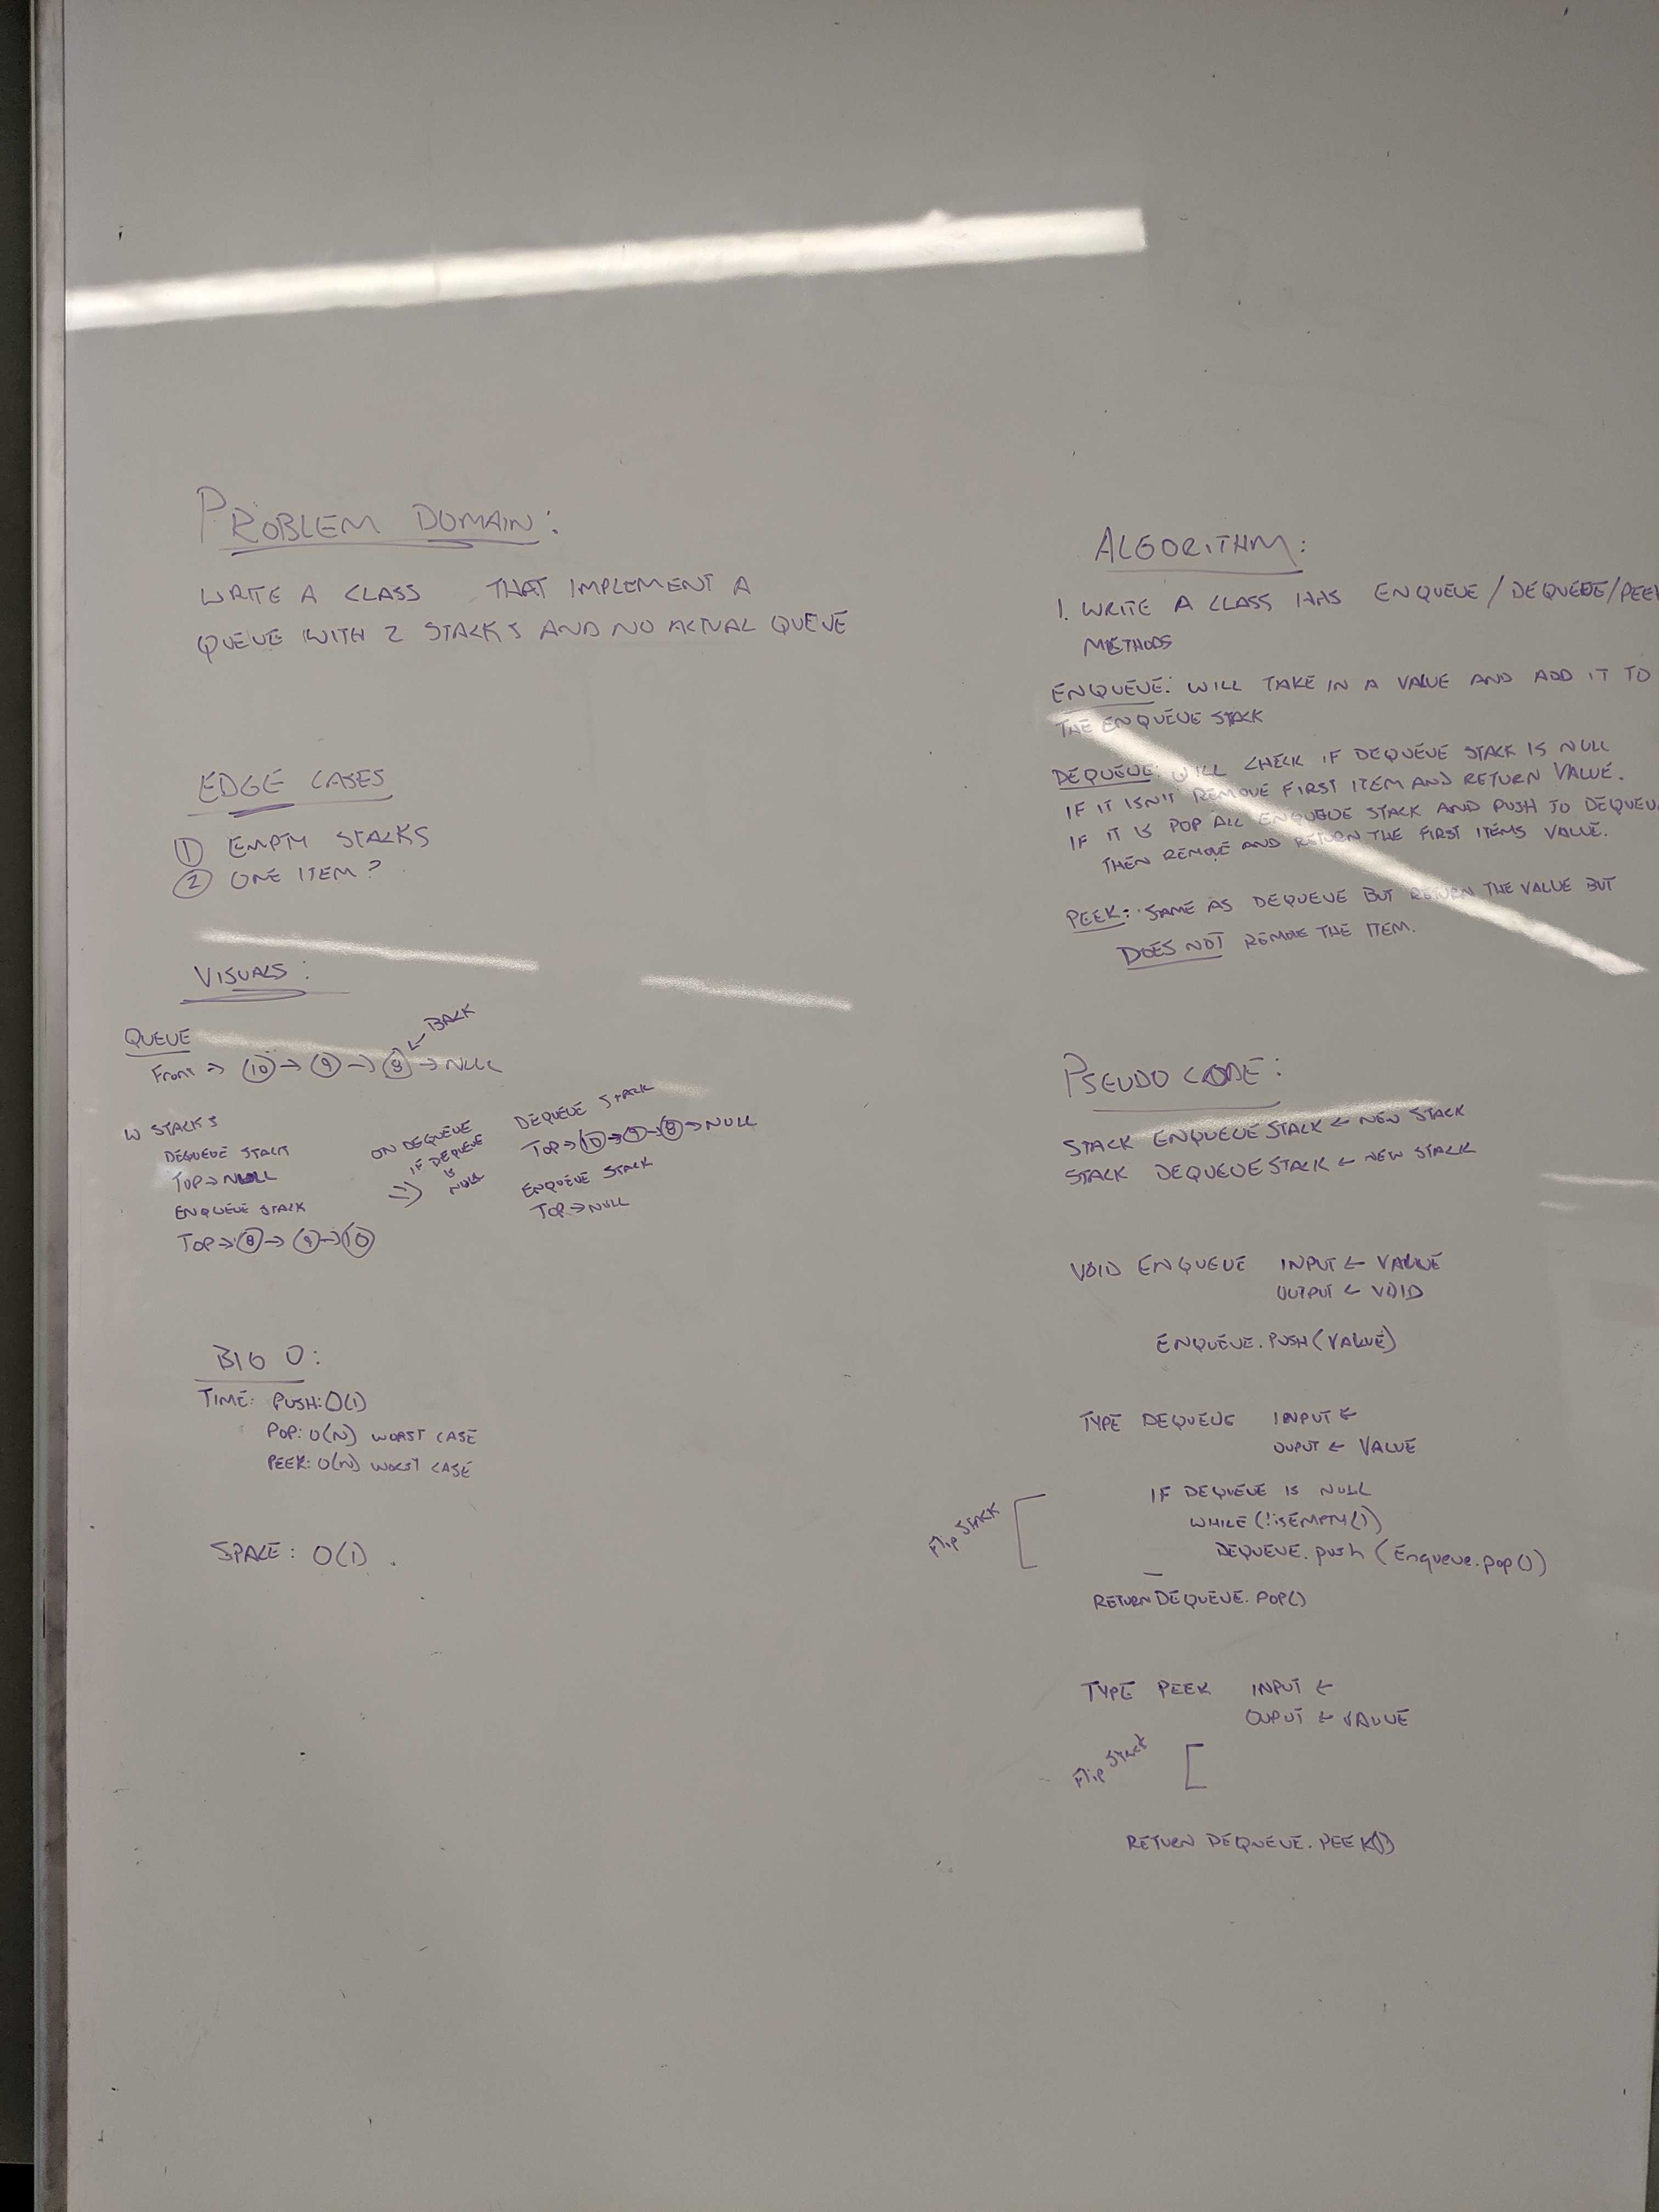 PROBLEM DOMAIN:
WRITE A CLASS THAT IMPLEMENT A
QUEUE WITH 2 STACKS AND NO ACTUAL QUEUE
EDGE CASES
1 EMPTY STACKS
2 ONE ITEM?
VISUALS:
QUEUE
BACK
FRONT => 10 -> 9 -> 8 -> NULL
W STACKS
DEQUEUE STACK
TOP -> NULL
ENQUEUE STACK
TOP => 8 -> 9 -> 10
ON DEQUEUE
IF DEQUEUE
IS
NULL
=>
DEQUEUE STACK
TOP => 10 -> 9 -> 8 -> NULL
ENQUEUE STACK
TOP => NULL
BIG O:
TIME: PUSH: O(1)
POP: O(N) WORST CASE
PEEK: O(N) WORST CASE
SPACE: O(1)
ALGORITHM:
1. WRITE A CLASS HAS ENQUEUE/DEQUEUE/PEEK
METHODS
ENQUEUE: WILL TAKE IN A VALUE AND ADD IT TO
THE ENQUEUE STACK
DEQUEUE: WILL CHECK IF DEQUEUE STACK IS NULL
IF IT ISN'T REMOVE FIRST ITEM AND RETURN VALUE.
IF IT IS POP ALL ENQUEUE STACK AND PUSH TO DEQUEU
THEN REMOVE AND RETURN THE FIRST ITEMS VALUE.
PEEK: SAME AS DEQUEUE BUT RETURN THE VALUE BUT
DOES NOT REMOVE THE ITEM.
PSEUDO CODE:
STACK ENQUEUE STACK <- NEW STACK
STACK DEQUEUE STACK <- NEW STACK
VOID ENQUEUE INPUT <- VALUE
OUTPUT <- VOID
ENQUEUE.PUSH(VALUE)
TYPE DEQUEUE INPUT <-
OUPUT <- VALUE
Flip STACK
IF DEQUEUE IS NULL
WHILE (!isEMPTY())
DEQUEUE.push(Enqueue.pop())
RETURN DEQUEUE.POP()
TYPE PEEK INPUT <-
OUPUT <- VALUE
Flip STACK
RETURN DEQUEUE.PEEK()